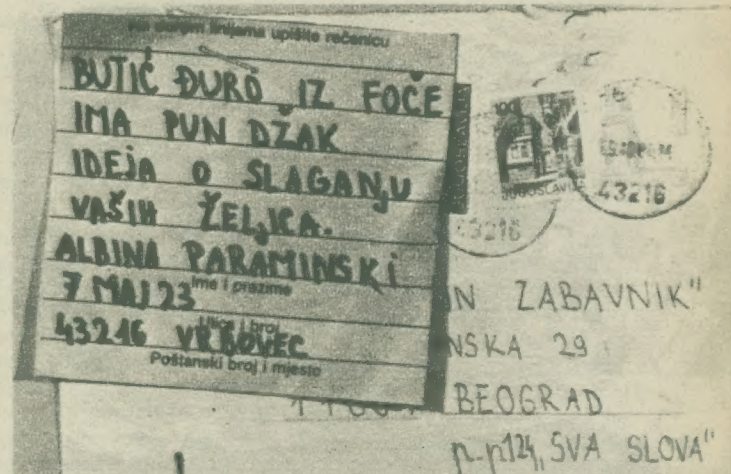 linijama upišite rečenicu
BUTIĆ ĐURO IZ FOČE
IMA PUN DŽAK
IDEJA O SLAGANJU
VAŠIH ŽELJICA.
ALBINA PARAMINSKI
Ime i prezime
7 MAJ 23
Ulica i broj
43216 VRBOVEC
Poštanski broj i mjesto
100
JUGOSLAVIJA
43216
43216
IN ZABAVNIK"
NSKA 29
BEOGRAD
p.p124, "SVA SLOVA"